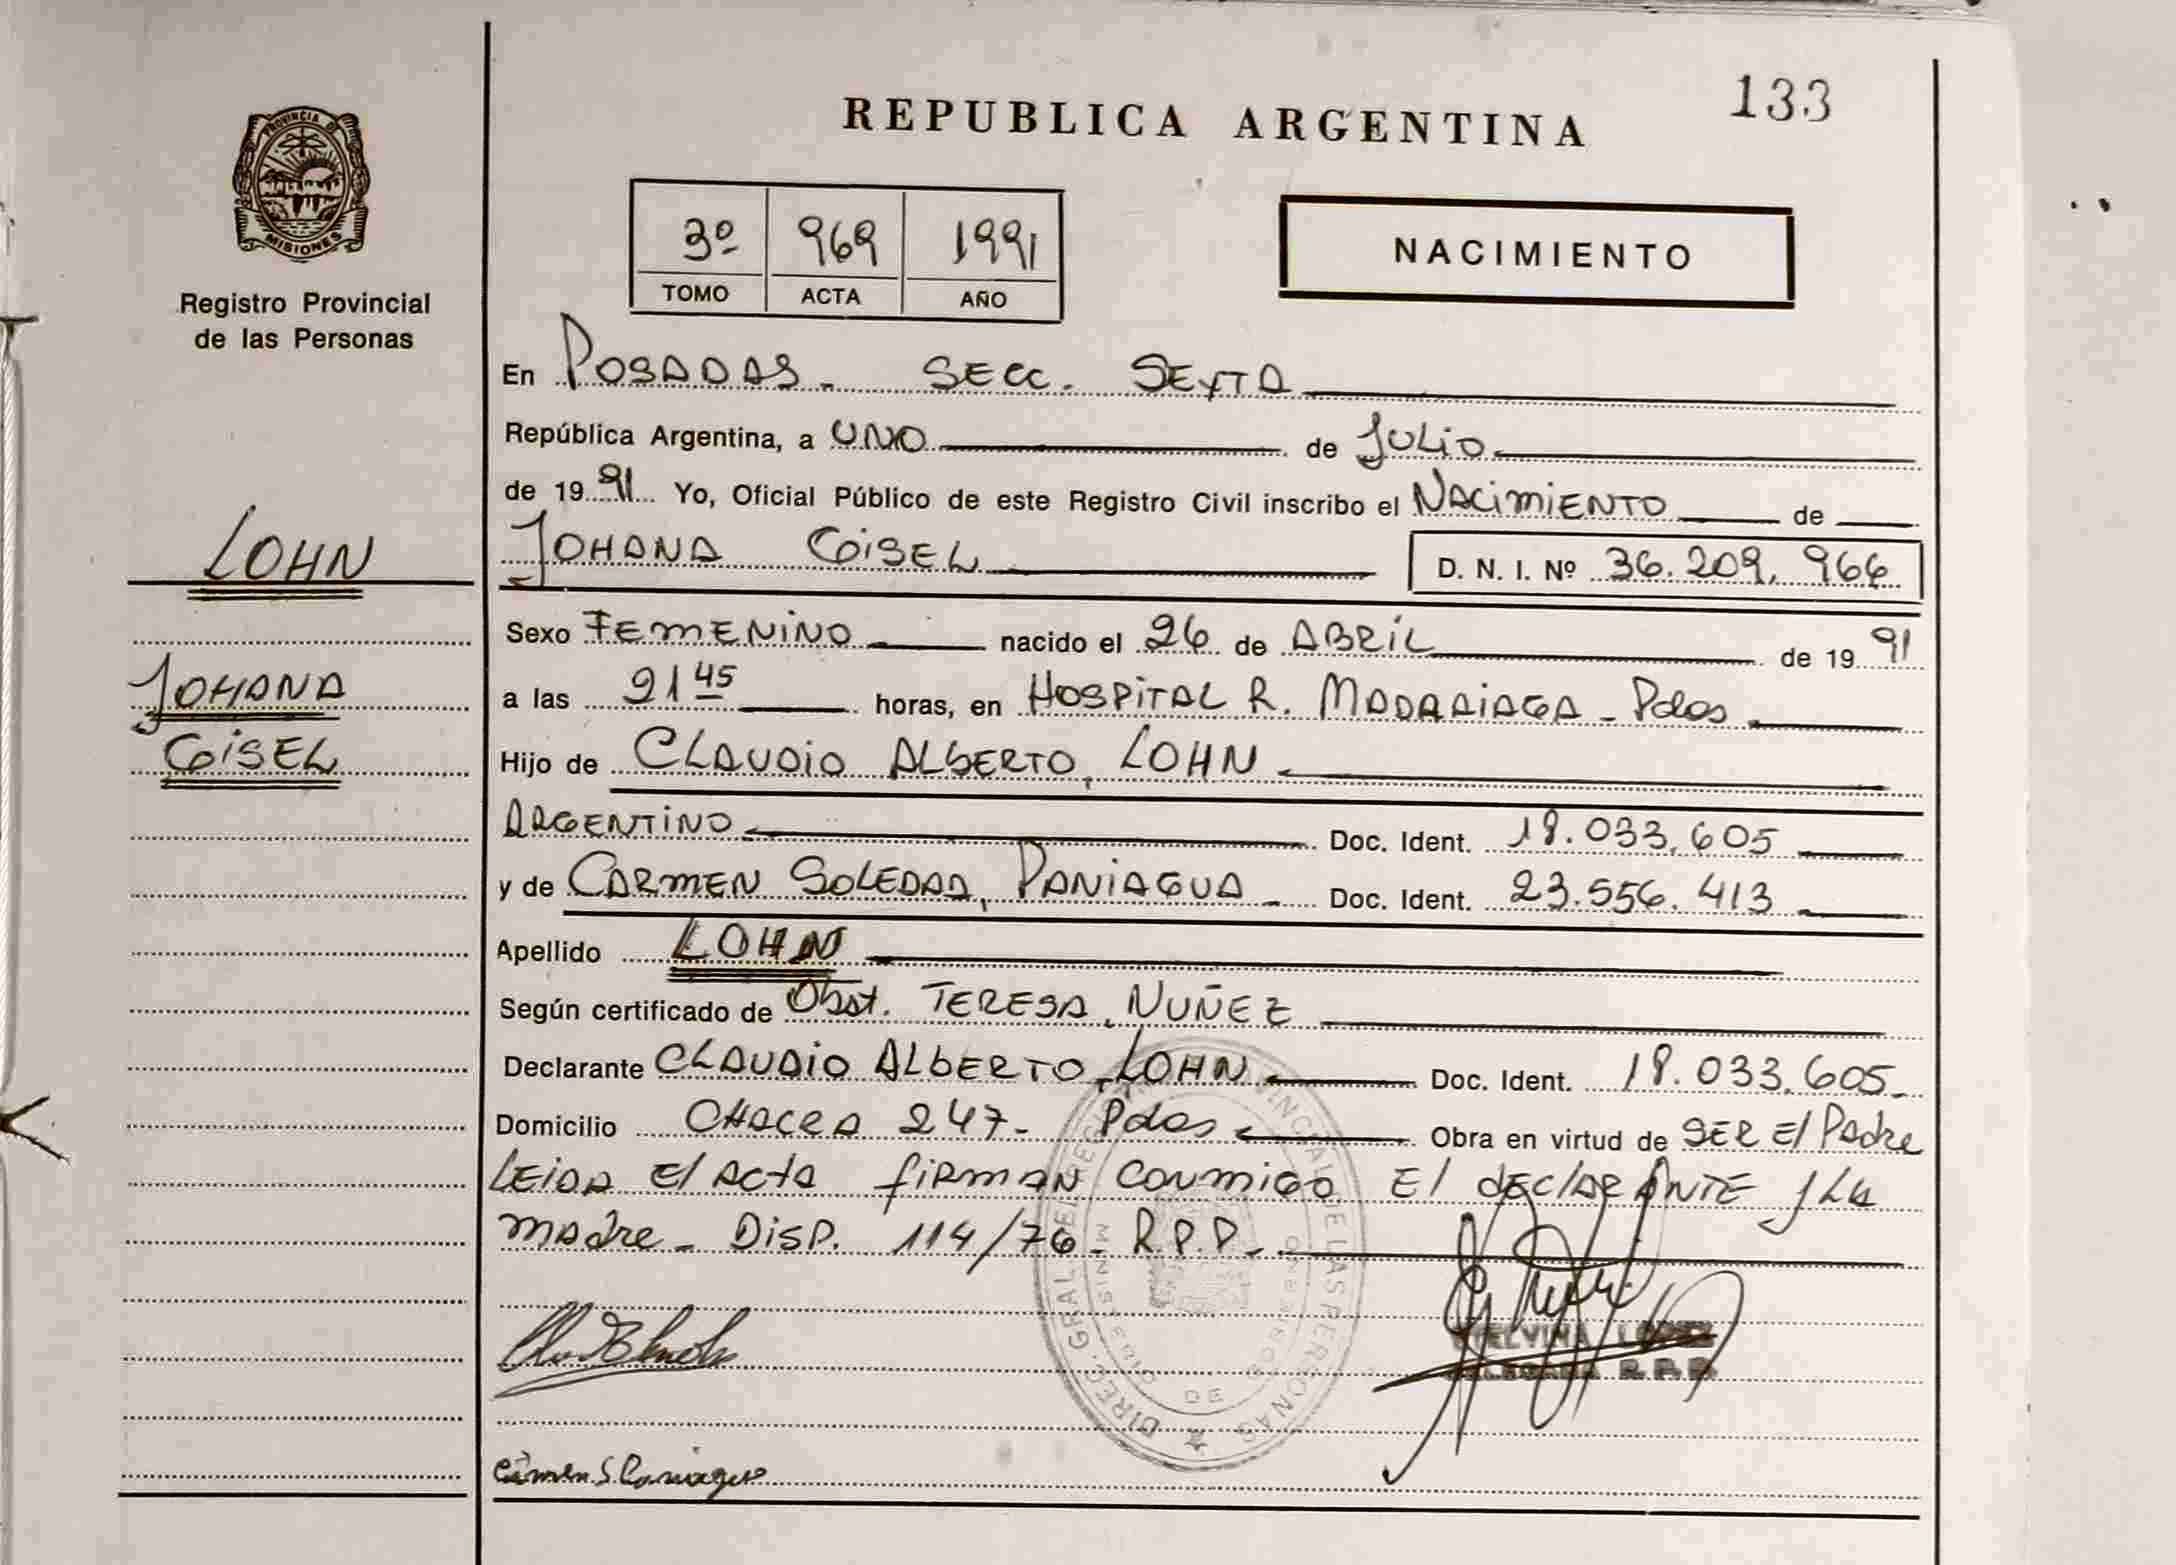 133
REPUBLICA ARGENTINA
PROVINCIA DE
MISIONES
Registro Provincial
de las Personas
3º 969 1991
TOMO ACTA AÑO
NACIMIENTO
En POSADAS - SECC. SEXTA
República Argentina, a UNO de JULIO
de 1991 Yo, Oficial Público de este Registro Civil inscribo el NACIMIENTO de
LOHN
JOHANA GISEL D. N. I. Nº 36.209.966
Sexo FEMENINO nacido el 26 de ABRIL de 1991
JOHANA
a las 21 45 horas, en HOSPITAL R. MADARIAGA - Pdas
GISEL
Hijo de CLAUDIO ALBERTO, LOHN
ARGENTINO Doc. Ident. 18.033.605
y de CARMEN SOLEDAD, PANIAGUA - Doc. Ident. 23.556.413
Apellido LOHN
Según certificado de Obst. TERESA, NUÑEZ
Declarante CLAUDIO ALBERTO, LOHN Doc. Ident. 18.033.605-
Domicilio CHACRA 247- Pdas Obra en virtud de SER El Padre
LEIDA El Acta firman conmigo El declarante y la
madre - DISP. 114/76 - R.P.P.
DIREC. GRAL DEL REG. PROVINCIAL DE LAS PERSONAS
MINISTERIO DE GOBIERNO
ELVIRA LOPEZ
DELEGADA R.P.P.
Carmen S. Paniagua